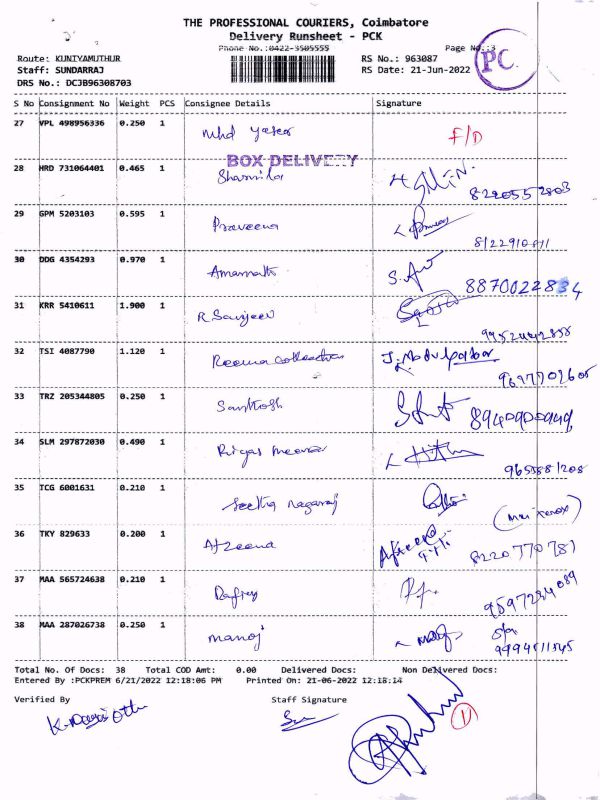 THE PROFESSIONAL COURIERS, Coimbatore
Delivery Runsheet - PCK
Phone No.:0422-3505555
Page No.:3
Route: KUNIYAMUTHUR
RS No.: 963087
Staff: SUNDARRAJ
RS Date: 21-Jun-2022
DRS No.: DCJB96308703
PC
S No Consignment No Weight PCS Consignee Details Signature
27 VPL 498956336 0.250 1 Mhd Yaser F/D
BOX DELIVERY
28 HRD 731064401 0.465 1 Sharmila
8220552803
29 GPM 5203103 0.595 1 Praveena
30 DDG 4354293 0.970 1 Amarnath
8870022834
31 KRR 5410611 1.900 1 R Sanjeev
32 TSI 4087790 1.120 1 Reema collection
9697702605
33 TRZ 205344805 0.250 1 Santhosh
34 SLM 297872030 0.490 1
9655881208
35 TCG 6001631 0.210 1 Seetha nagaraj
36 TKY 829633 0.200 1 Afreena Afreena
8220770781
37 MAA 565724638 0.210 1
9597234089
38 MAA 287026738 0.250 1 manoj
Total No. Of Docs: 38 Total COD Amt: 0.00 Delivered Docs: Non Delivered Docs:
Entered By :PCKPREM 6/21/2022 12:18:06 PM Printed On: 21-06-2022 12:18:14
Verified By Staff Signature
1